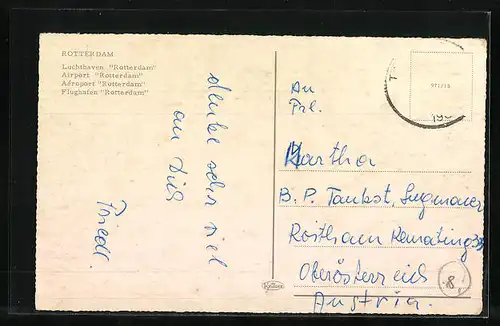 ROTTERDAM
Luchthaven "Rotterdam"
Airport "Rotterdam"
Aéroport "Rotterdam"
Flughafen "Rotterdam"
denke sehr viel
an Dich
Friedl.
An
Frl.
Martha
B. P. Tankst.
Roitham
Oberösterreich
Austria.
8